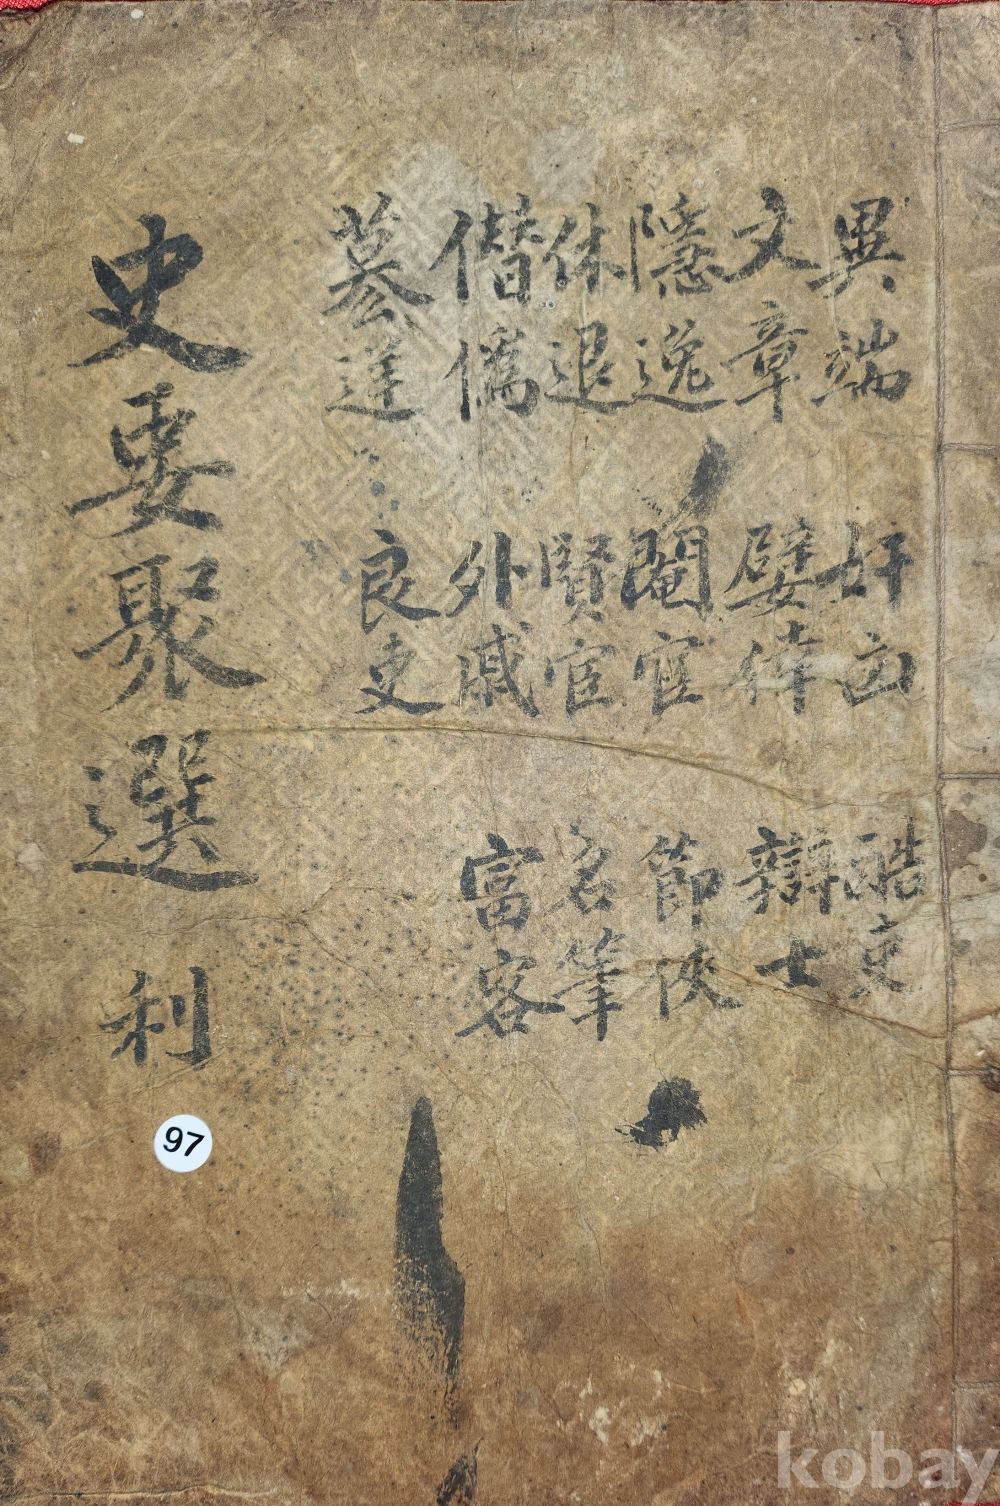 異端 奸凶 酷吏
文章 嬖倖 辯士
隱逸 閹宦 節俠
休退 賢宦 名筆
僭僞 外戚 富客
篡逆 良吏
史要聚選 利
97
kobay